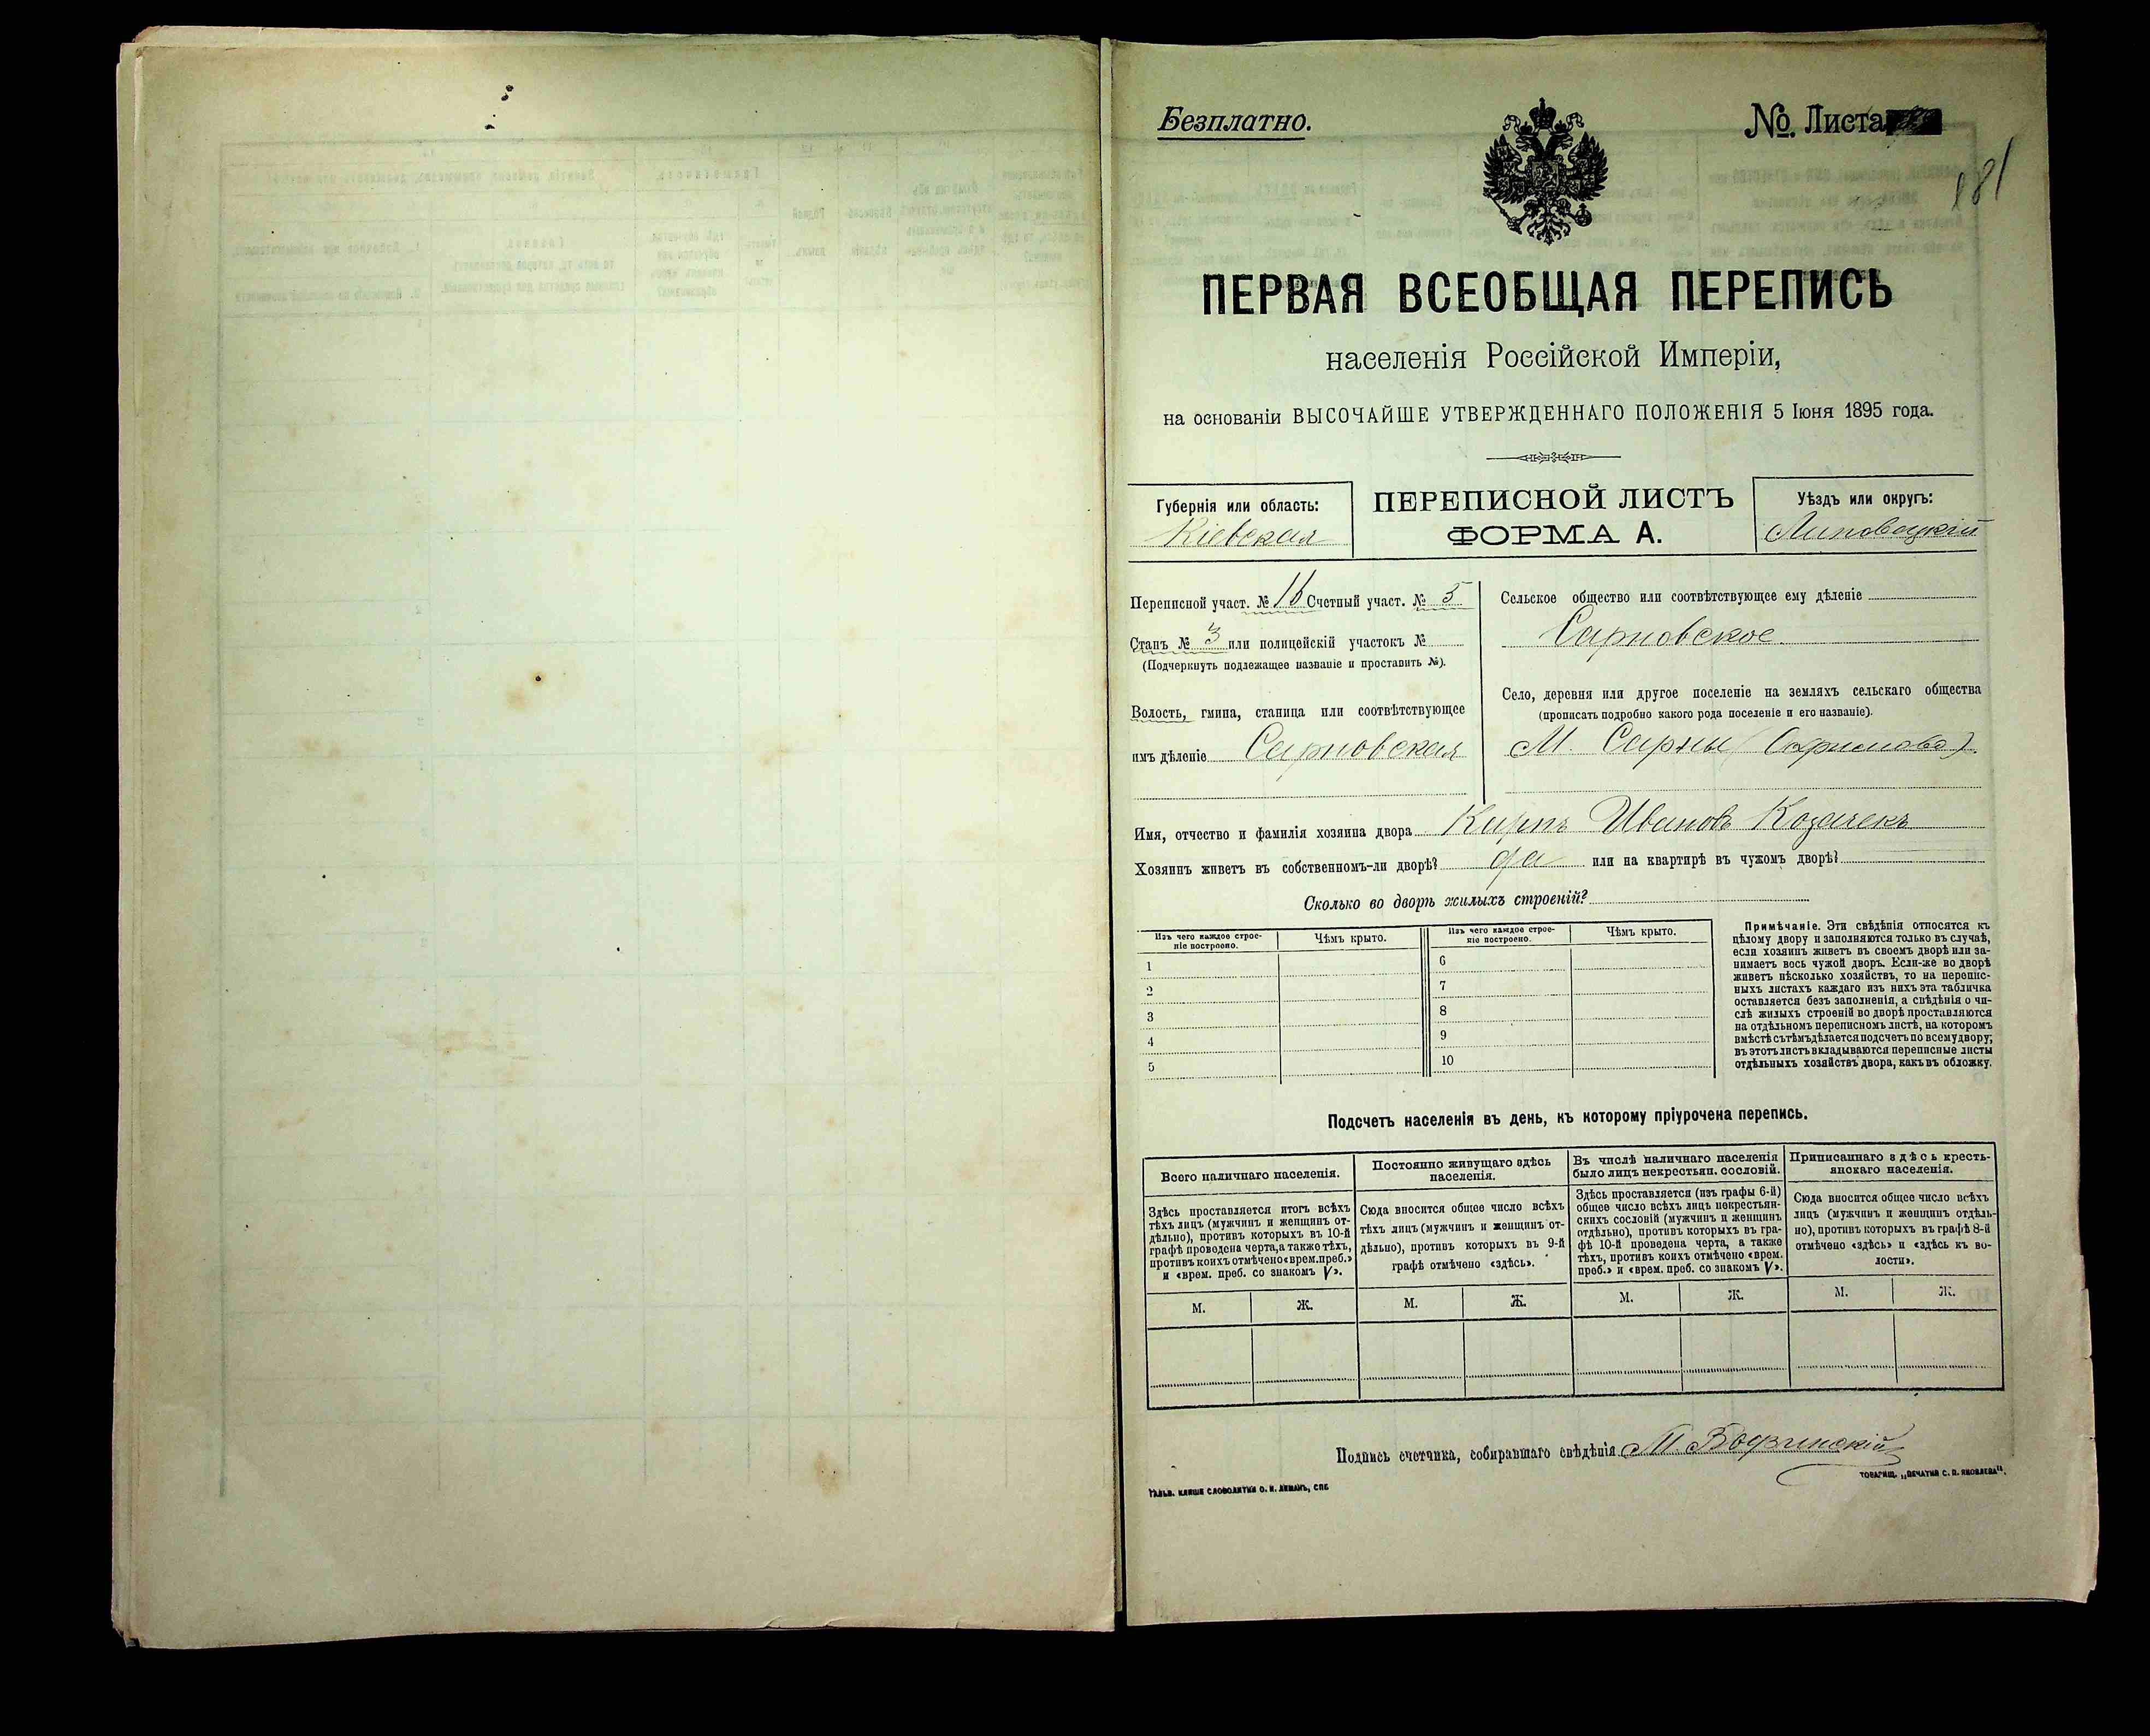 Безплатно.
№. Листа
181
ПЕРВАЯ ВСЕОБЩАЯ ПЕРЕПИСЬ
населенія Россійской Имперіи,
на основаніи ВЫСОЧАЙШЕ УТВЕРЖДЕННАГО ПОЛОЖЕНІЯ 5 Іюня 1895 года.
Губернія или область:
Кіевская
ПЕРЕПИСНОЙ ЛИСТЪ
ФОРМА А.
Уѣздъ или округъ:
Липовецкій
Переписной участ. № 16 Счетный участ. № 5
Станъ № 3 или полицейскій участокъ №
(Подчеркнуть подлежащее названіе и проставить №).
Волость, гмина, станица или соотвѣтствующее
имъ дѣленіе Сарновская
Сельское общество или соотвѣтствующее ему дѣленіе
Сарновское
Село, деревня или другое поселеніе на земляхъ сельскаго общества
(прописать подробно какого рода поселеніе и его названіе).
М. Сарны
Имя, отчество и фамилія хозяина двора Кирпъ Ивановъ Козачекъ
Хозяинъ живетъ въ собственномъ-ли дворѣ? да или на квартирѣ въ чужомъ дворѣ?
Сколько во дворѣ жилыхъ строеній?
Изъ чего каждое строе-
ніе построено.
Чѣмъ крыто.
Изъ чего каждое строе-
ніе построено.
Чѣмъ крыто.
1
2
3
4
5
6
7
8
9
10
Примѣчаніе. Эти свѣдѣнія относятся къ
цѣлому двору и заполняются только въ случаѣ,
если хозяинъ живетъ въ своемъ дворѣ или за-
нимаетъ весь чужой дворъ. Если-же во дворѣ
живетъ нѣсколько хозяйствъ, то на перепис-
ныхъ листахъ каждаго изъ нихъ эта табличка
оставляется безъ заполненія, а свѣдѣнія о чи-
слѣ жилыхъ строеній во дворѣ проставляются
на отдѣльномъ переписномъ листѣ, на которомъ
вмѣстѣ съ тѣмъ дѣлается подсчетъ по всему двору;
въ этотъ листъ вкладываются переписные листы
отдѣльныхъ хозяйствъ двора, какъ въ обложку.
Подсчетъ населенія въ день, къ которому пріурочена перепись.
Всего наличнаго населенія.
Здѣсь проставляется итогъ всѣхъ
тѣхъ лицъ (мужчинъ и женщинъ от-
дѣльно), противъ которыхъ въ 10-й
графѣ проведена черта, а также тѣхъ,
противъ коихъ отмѣчено «врем. преб.»
и «врем. преб. со знакомъ V».
М.
Ж.
Постоянно живущаго здѣсь
населенія.
Сюда вносится общее число всѣхъ
тѣхъ лицъ (мужчинъ и женщинъ от-
дѣльно), противъ которыхъ въ 9-й
графѣ отмѣчено «здѣсь».
М.
Ж.
Въ числѣ наличнаго населенія
было лицъ некрестьян. сословій.
Здѣсь проставляется (изъ графы 6-й)
общее число всѣхъ лицъ некрестьян-
скихъ сословій (мужчинъ и женщинъ
отдѣльно), противъ которыхъ въ гра-
фѣ 10-й проведена черта, а также
тѣхъ, противъ коихъ отмѣчено «врем.
преб.» и «врем. преб. со знакомъ V».
М.
Ж.
Приписаннаго здѣсь кресть-
янскаго населенія.
Сюда вносится общее число всѣхъ
лицъ (мужчинъ и женщинъ отдѣль-
но), противъ которыхъ въ графѣ 8-й
отмѣчено «здѣсь» и «здѣсь къ во-
лости».
М.
Ж.
Подпись счетчика, собиравшаго свѣдѣнія
ГАЛЬВ. КЛИШЕ СЛОВОЛИТНИ О. И. ЛЕМАНЪ, СПБ
ТОВАРИЩ. „ПЕЧАТНЯ С. П. ЯКОВЛЕВА“.